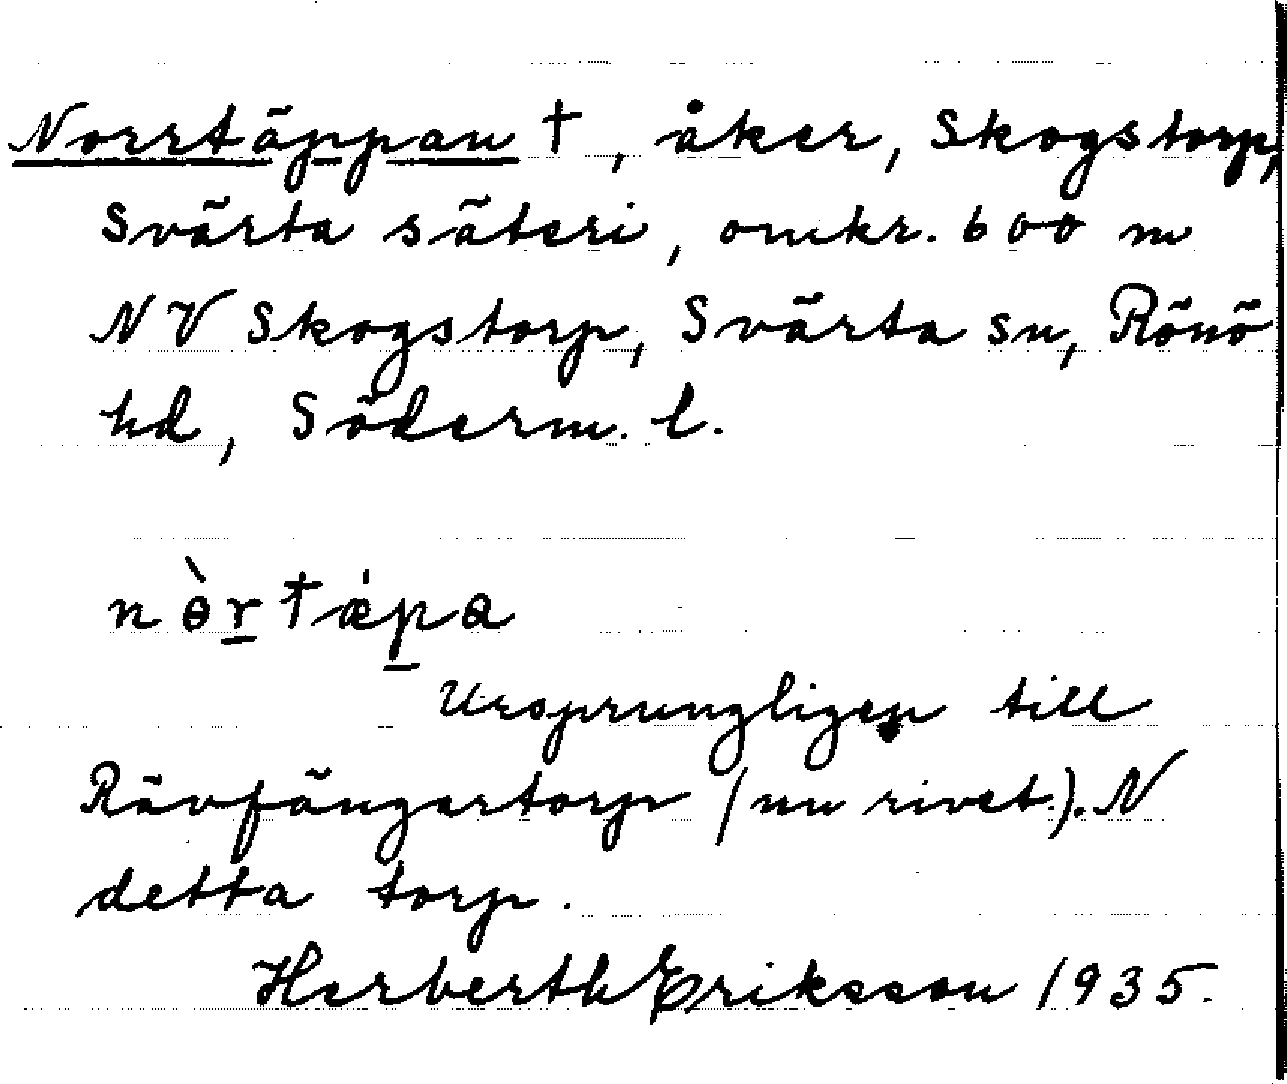 Norrtäppan †, åker, Skogstorp,
Svärta säteri, omkr. 600 m
NV Skogstorp, Svärta sn, Rönö
hd, Söderm. l.
nɵ̀r̲tǽp̲a
Ursprungligen till
Rävfångartorp (nu rivet). N
detta torp.
Herberth Eriksson 1935.